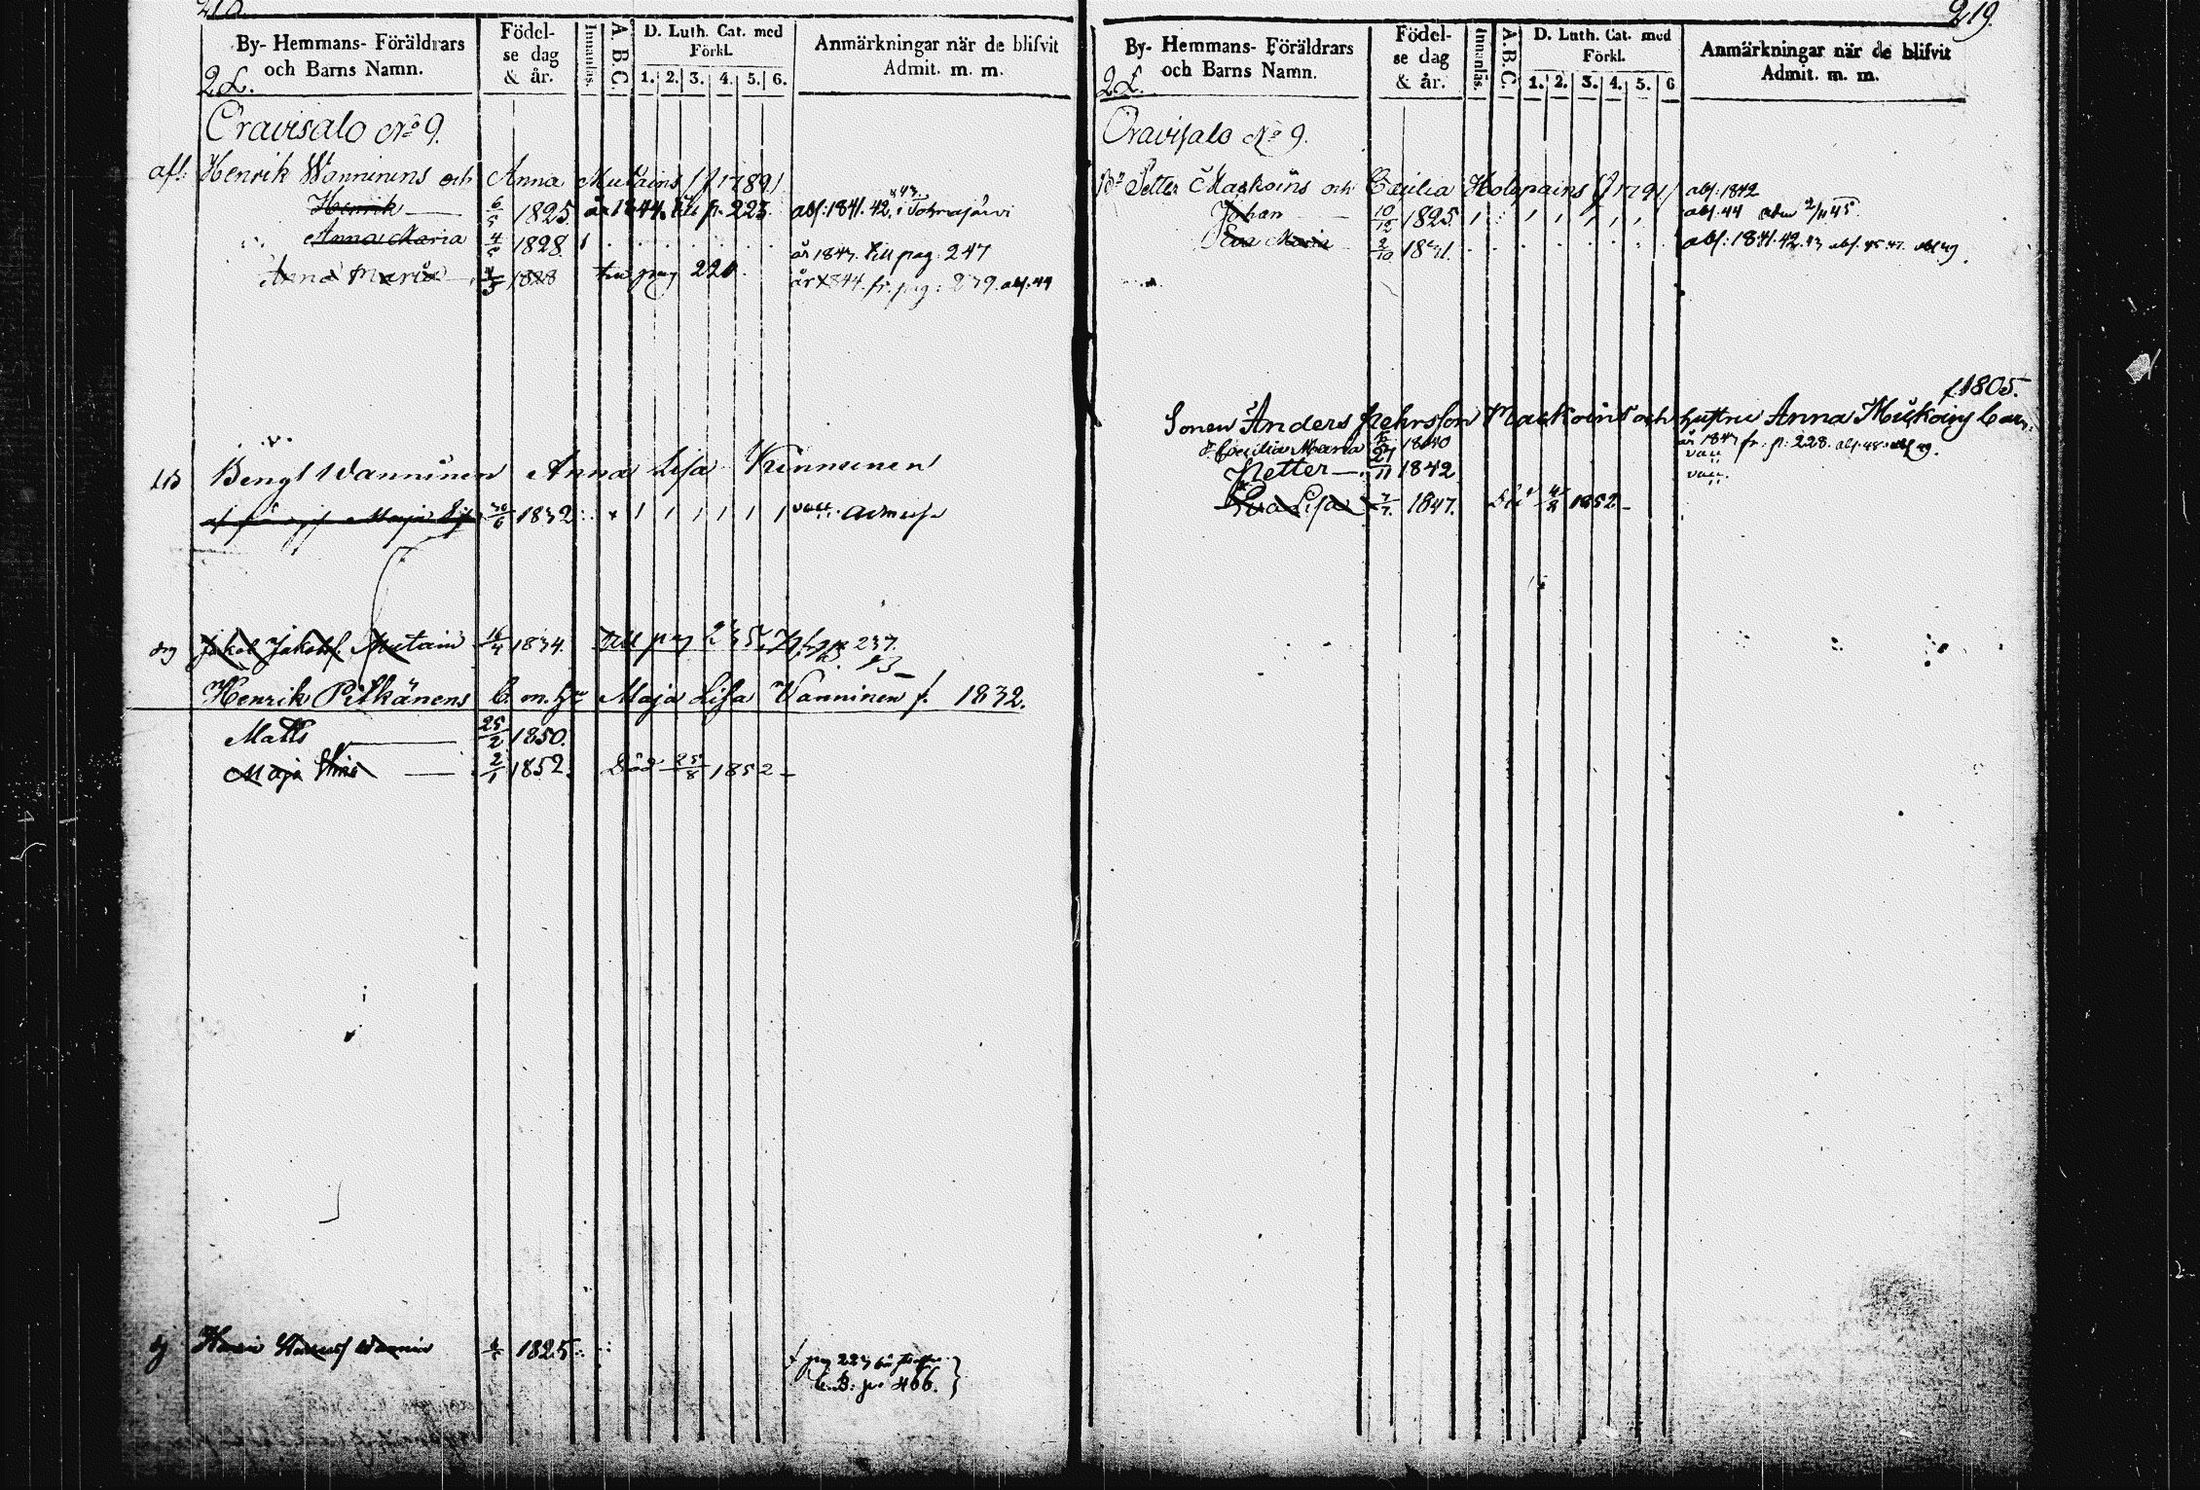 218.
By- Hemmans- Föräldrars
och Barns Namn.
Födel-
se dag
& år.
Innanläs.
A. B. C.
D. Luth. Cat. med
Förkl.
1. 2. 3. 4. 5. 6.
Anmärkningar när de blifvit
Admit. m. m.
2L.
Oravisalo No 9.
afl: Henrik Wanninens och Anna Mutains (f 1789)
Henrik 6/5 1825 år 1844 till p. 223. abs: 1841. 42. "43" i Tohmajärvi
Anna Maria 4/5 1828. år 1843 till pag. 247
Anna Maria 4/5 1828 till pag 220. år 1844 fr. pag: 279. abs. 44
Bengt Wanninen Anna Lisa Kinnunen
Maja 1832 vacc.
Jakob Jakobs. Mutain 16/4 1834. till pag 235. 237.
Henrik Pitkänens b. m. Hu Maja Lisa Vanninen f. 1832.
Matts 25/2 1850.
Maja Stina 2/1 1852. Död 25/8 1852
1825
pag 223
L.B: p. 466.
219.
By- Hemmans- Föräldrars
och Barns Namn.
Födel-
se dag
& år.
Innanläs.
A. B. C.
D. Luth. Cat. med
Förkl.
1. 2. 3. 4. 5. 6
Anmärkningar när de blifvit
Admit. m. m.
2L.
Oravisalo No 9.
Petter Maskoins och Cecilia Holopains (f 1791) abs: 1842
Johan 10/12 1825. abs. 44 adm 2/11 45.
Eva Maria 2/10 1831. abs: 1841. 42. 43 abs. 45. 47. abs 49.
f. 1805.
Sonen Anders Pehrsson Maskoins och hustru Anna Muskoins barn:
Cecilia Maria 1840 år 1847 fr. p: 228. abs. 48. abs 49.
vacc
Petter 1842 vacc.
Eva Lisa 1847. Död 1852